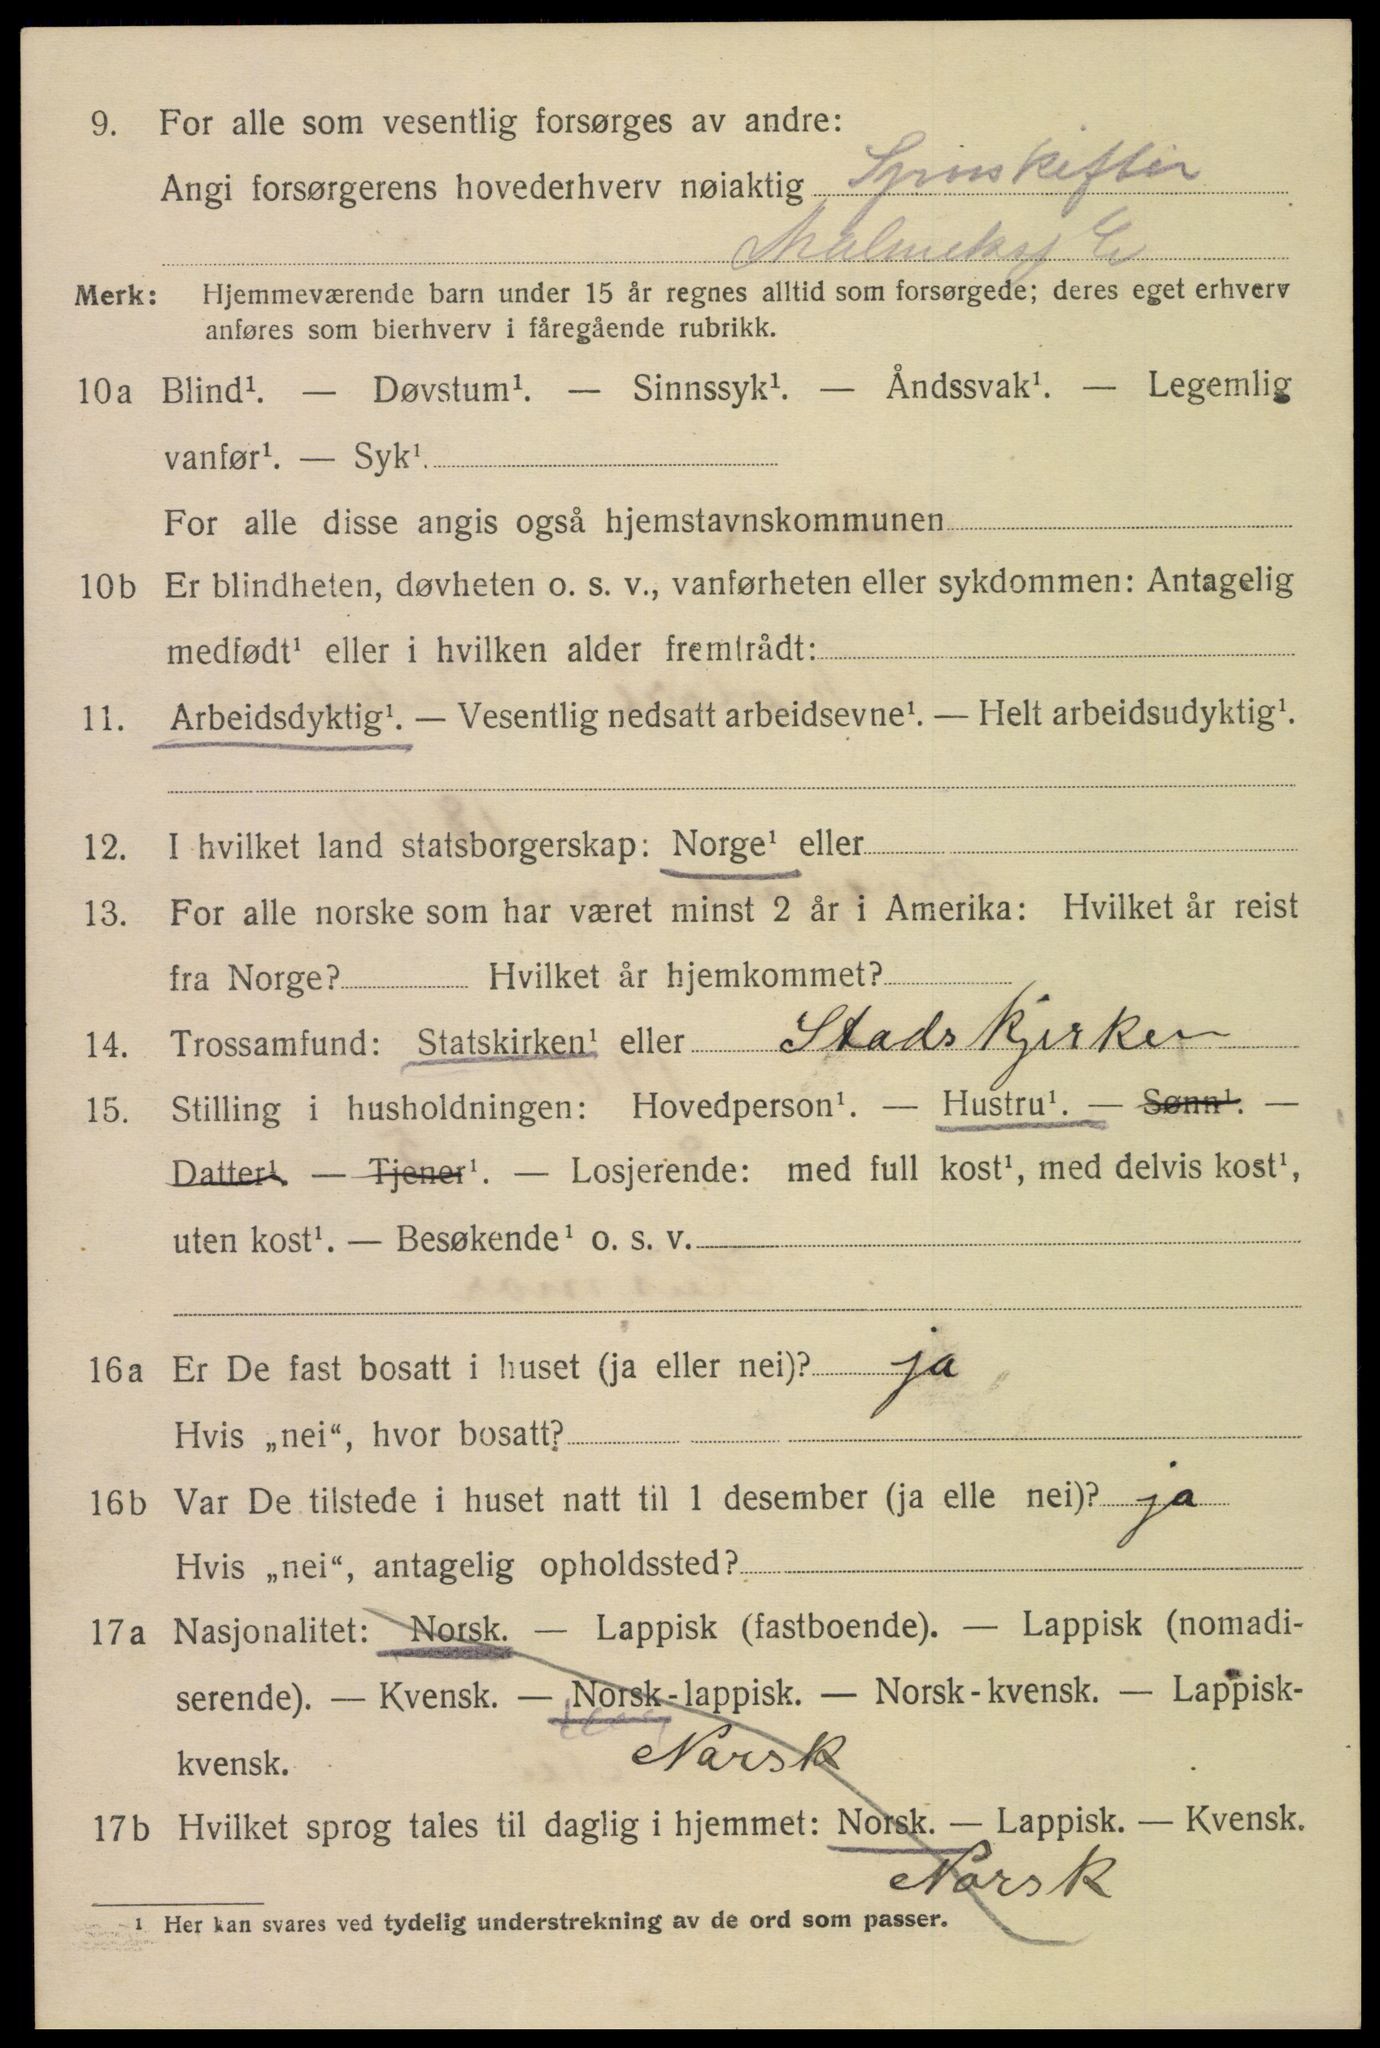 9. For alle som vesentlig forsørges av andre:
Angi forsørgerens hovederhverv nøiaktig Sporskifter
Malmeksp
Merk: Hjemmeværende barn under 15 år regnes alltid som forsørgede; deres eget erhverv
anføres som bierhverv i fåregående rubrikk.
10a Blind¹. — Døvstum¹. — Sinnssyk¹. — Åndssvak¹. — Legemlig
vanfør¹. — Syk¹.
For alle disse angis også hjemstavnskommunen
10b Er blindheten, døvheten o. s. v., vanførheten eller sykdommen: Antagelig
medfødt¹ eller i hvilken alder fremtrådt:
11. Arbeidsdyktig¹. — Vesentlig nedsatt arbeidsevne¹. — Helt arbeidsudyktig¹.
12. I hvilket land statsborgerskap: Norge¹ eller
13. For alle norske som har været minst 2 år i Amerika: Hvilket år reist
fra Norge? Hvilket år hjemkommet?
14. Trossamfund: Statskirken¹ eller Stadskjirken
15. Stilling i husholdningen: Hovedperson¹. — Hustru¹. — Sønn¹. —
Datter¹. — Tjener¹. — Losjerende: med full kost¹, med delvis kost¹,
uten kost¹. — Besøkende¹ o. s. v.
16a Er De fast bosatt i huset (ja eller nei)? ja
Hvis „nei“, hvor bosatt?
16b Var De tilstede i huset natt til 1 desember (ja elle nei)? ja
Hvis „nei“, antagelig opholdssted?
17a Nasjonalitet: Norsk. — Lappisk (fastboende). — Lappisk (nomadi-
serende). — Kvensk. — Norsk-lappisk. — Norsk-kvensk. — Lappisk-
kvensk. Norsk
17b Hvilket sprog tales til daglig i hjemmet: Norsk. — Lappisk. — Kvensk.
Norsk
¹ Her kan svares ved tydelig understrekning av de ord som passer.